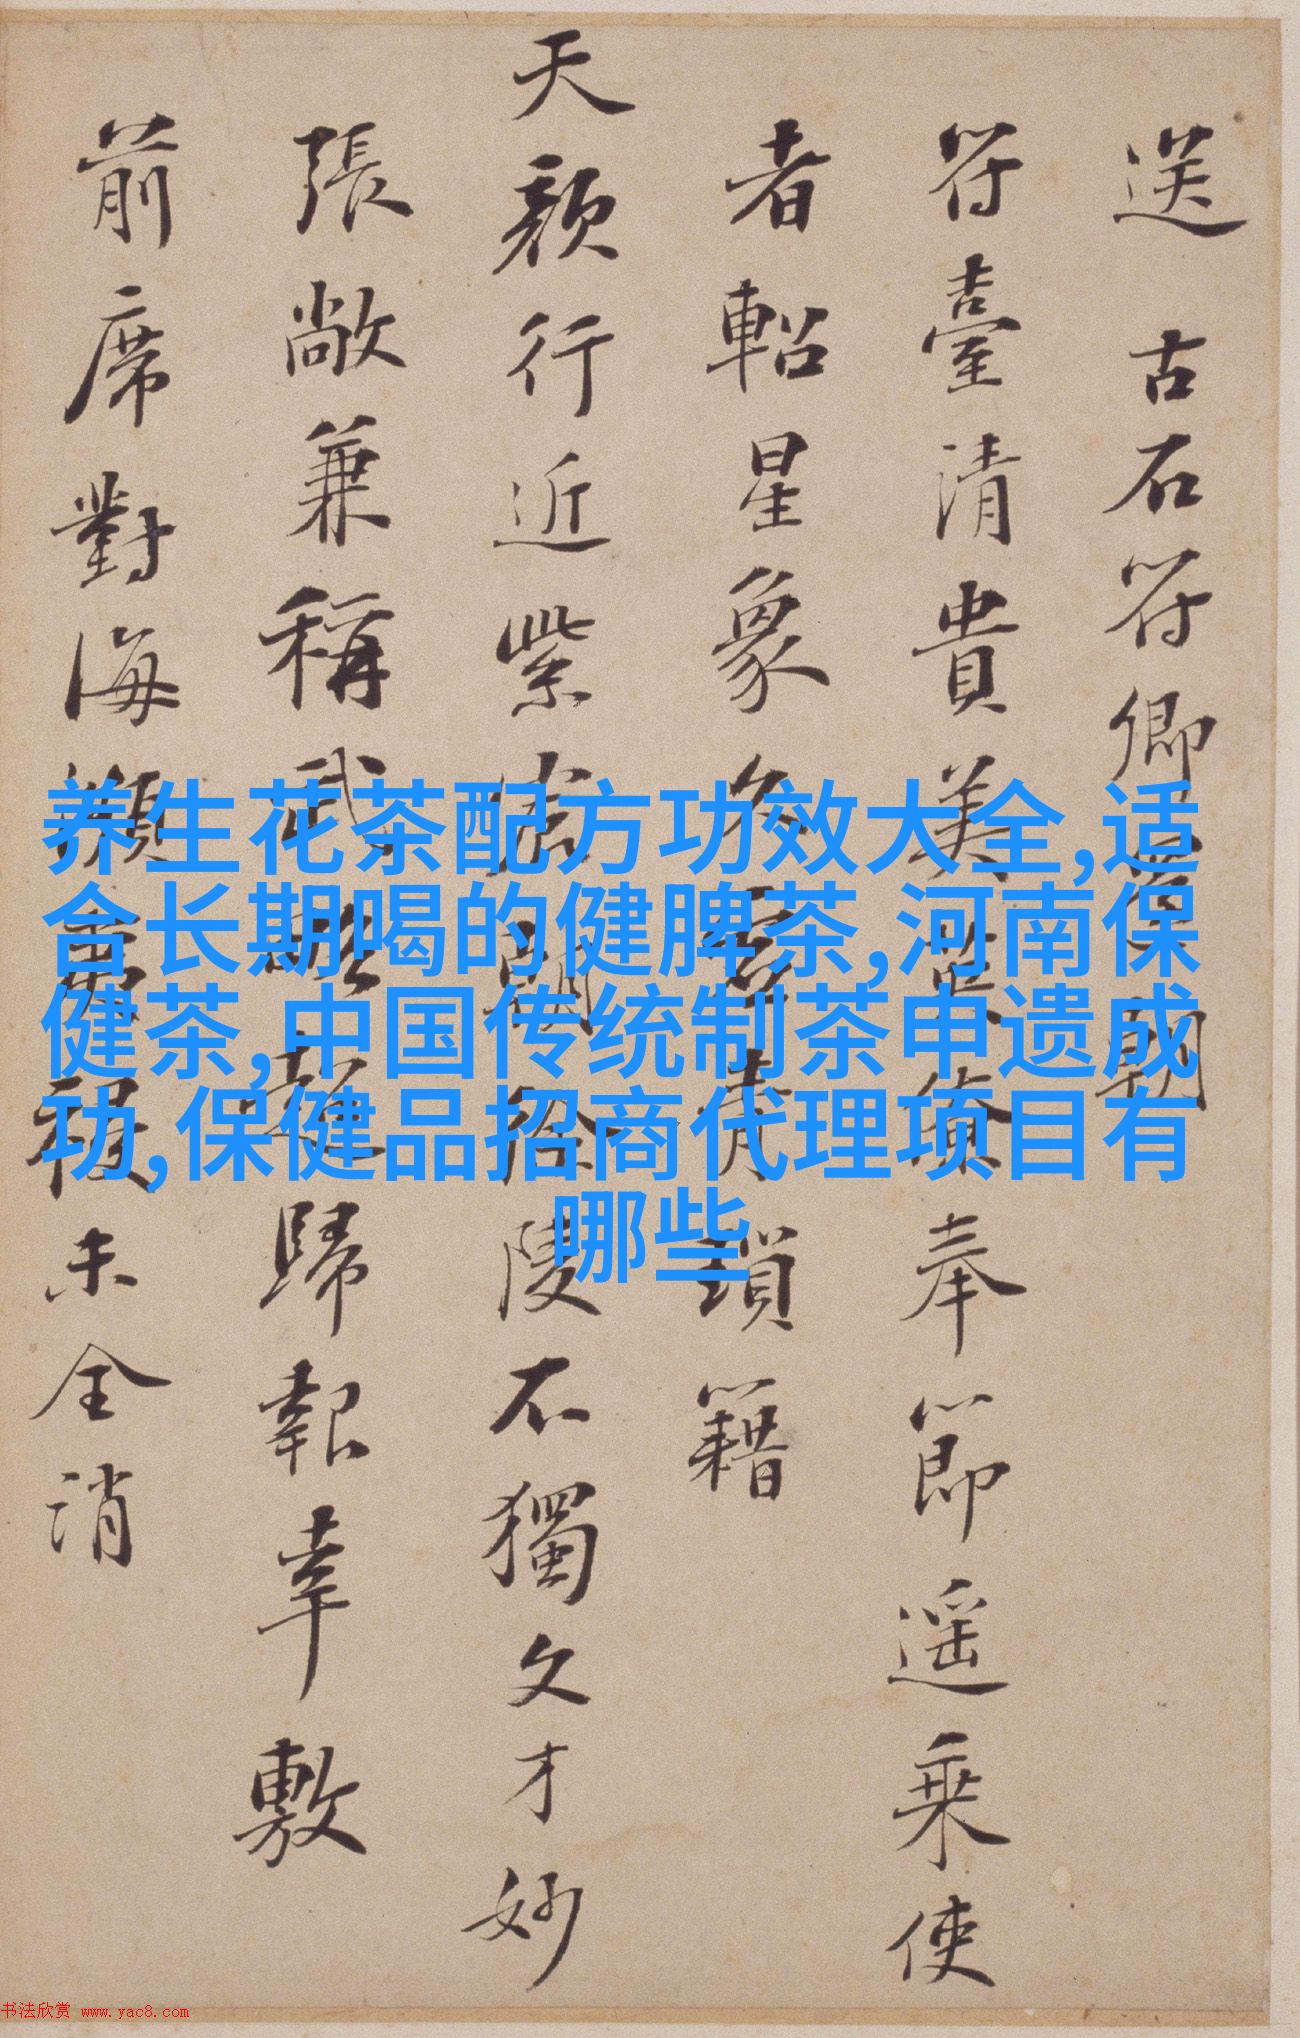 送 古石符卿還朝
符臺清貴美僚奉節遥乗使
者軺星象青瑣籍
天顔行近紫宸朝徐陵不獨文才妙
張敞兼稱武略超歸報幸敷
前席對海瀕祲未全消
养生花茶配方功效大全,适
合长期喝的健脾茶,河南保
健茶,中国传统制茶申遗成
功,保健品招商代理项目有
哪些
书法欣赏 www.yac8.com